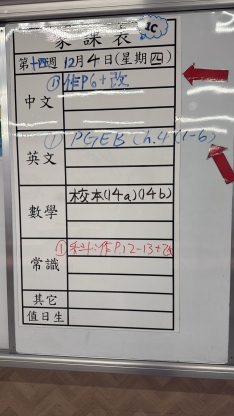 家課表
1C
第十四週 12月4日(星期四)
中文 ① 作P6+改
英文 ① PGEB Ch.4 (1-6)
數學 校本(14a)(14b)
常識 ① 科:作P.12-13+改
其它
值日生